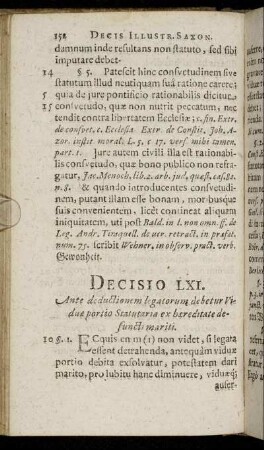 152 DECIS ILLUSTR. SAXON.
damnum inde resultans non statuto, sed sibi
imputare debet.
14 §. 5. Patescit hinc consvetudinem sive
statutum illud neutiquam suâ ratione carere;
5 quia de jure pontificio rationabilis dicitur
15 consvetudo, quæ non nutrit peccatum, nec
tendit contra libertatem Ecclesiæ; c. fin. Extr.
de consvet. c. Ecclesia Extr. de Constit. Joh. A-
zor. instit moral. L. 5, c 17. vers. mihi tamen.
part. 1. Jure autem civili illa est rationabi-
lis consvetudo, quæ bono publico non refra-
gatur, Jac. Menoch. lib. 2. arb. jud. quæst. cas. 82.
n. 8. & quando introducentes consvetudi-
nem, putant illam esse bonam, moribusque
suis convenientem, licèt contineat aliquam
iniquitatem, uti post Bald. in l. non omn. ff. de
Leg. Andr. Tiraquell. de utr. retract. in præfat.
num. 75. scribit Wehner, in observ. pract. verb.
Gewonheit.
DECISIO LXI.
Ante deductionem legatorum debetur Vi-
duæ portio Statutaria ex hereditate de-
functi mariti.
10 §. 1. ÆQuis en m (1) non videt, si legata
essent detrahenda, antequàm viduæ
portio debita exsolvatur, potestatem dari
marito, pro lubitu hanc diminuere, viduæq;
aufer-